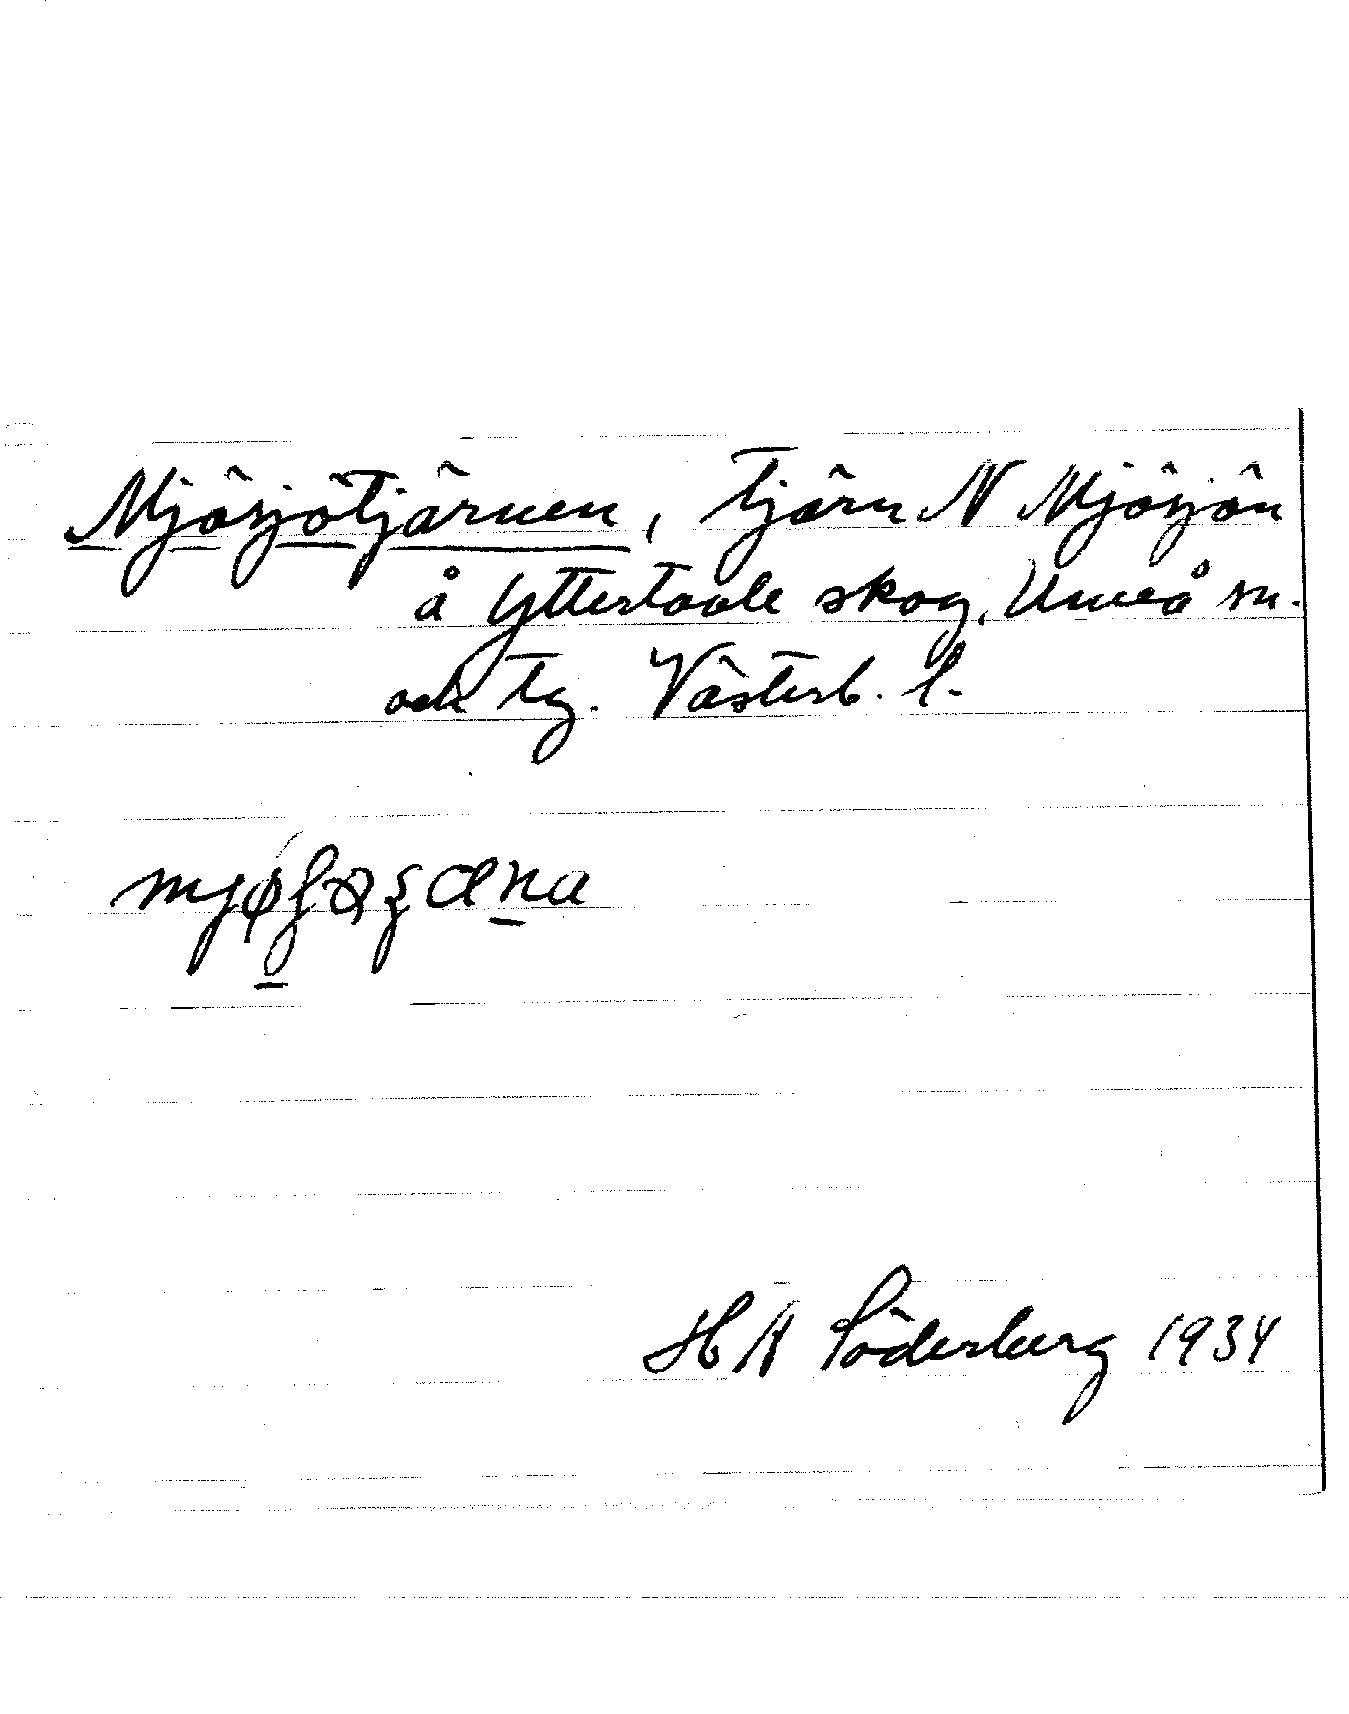 Mjösjötjärnen, tjärn N Mjösjön
å Yttertavle skog, Umeå sn.
och tg. Västerb. l.
H A Söderberg 1934